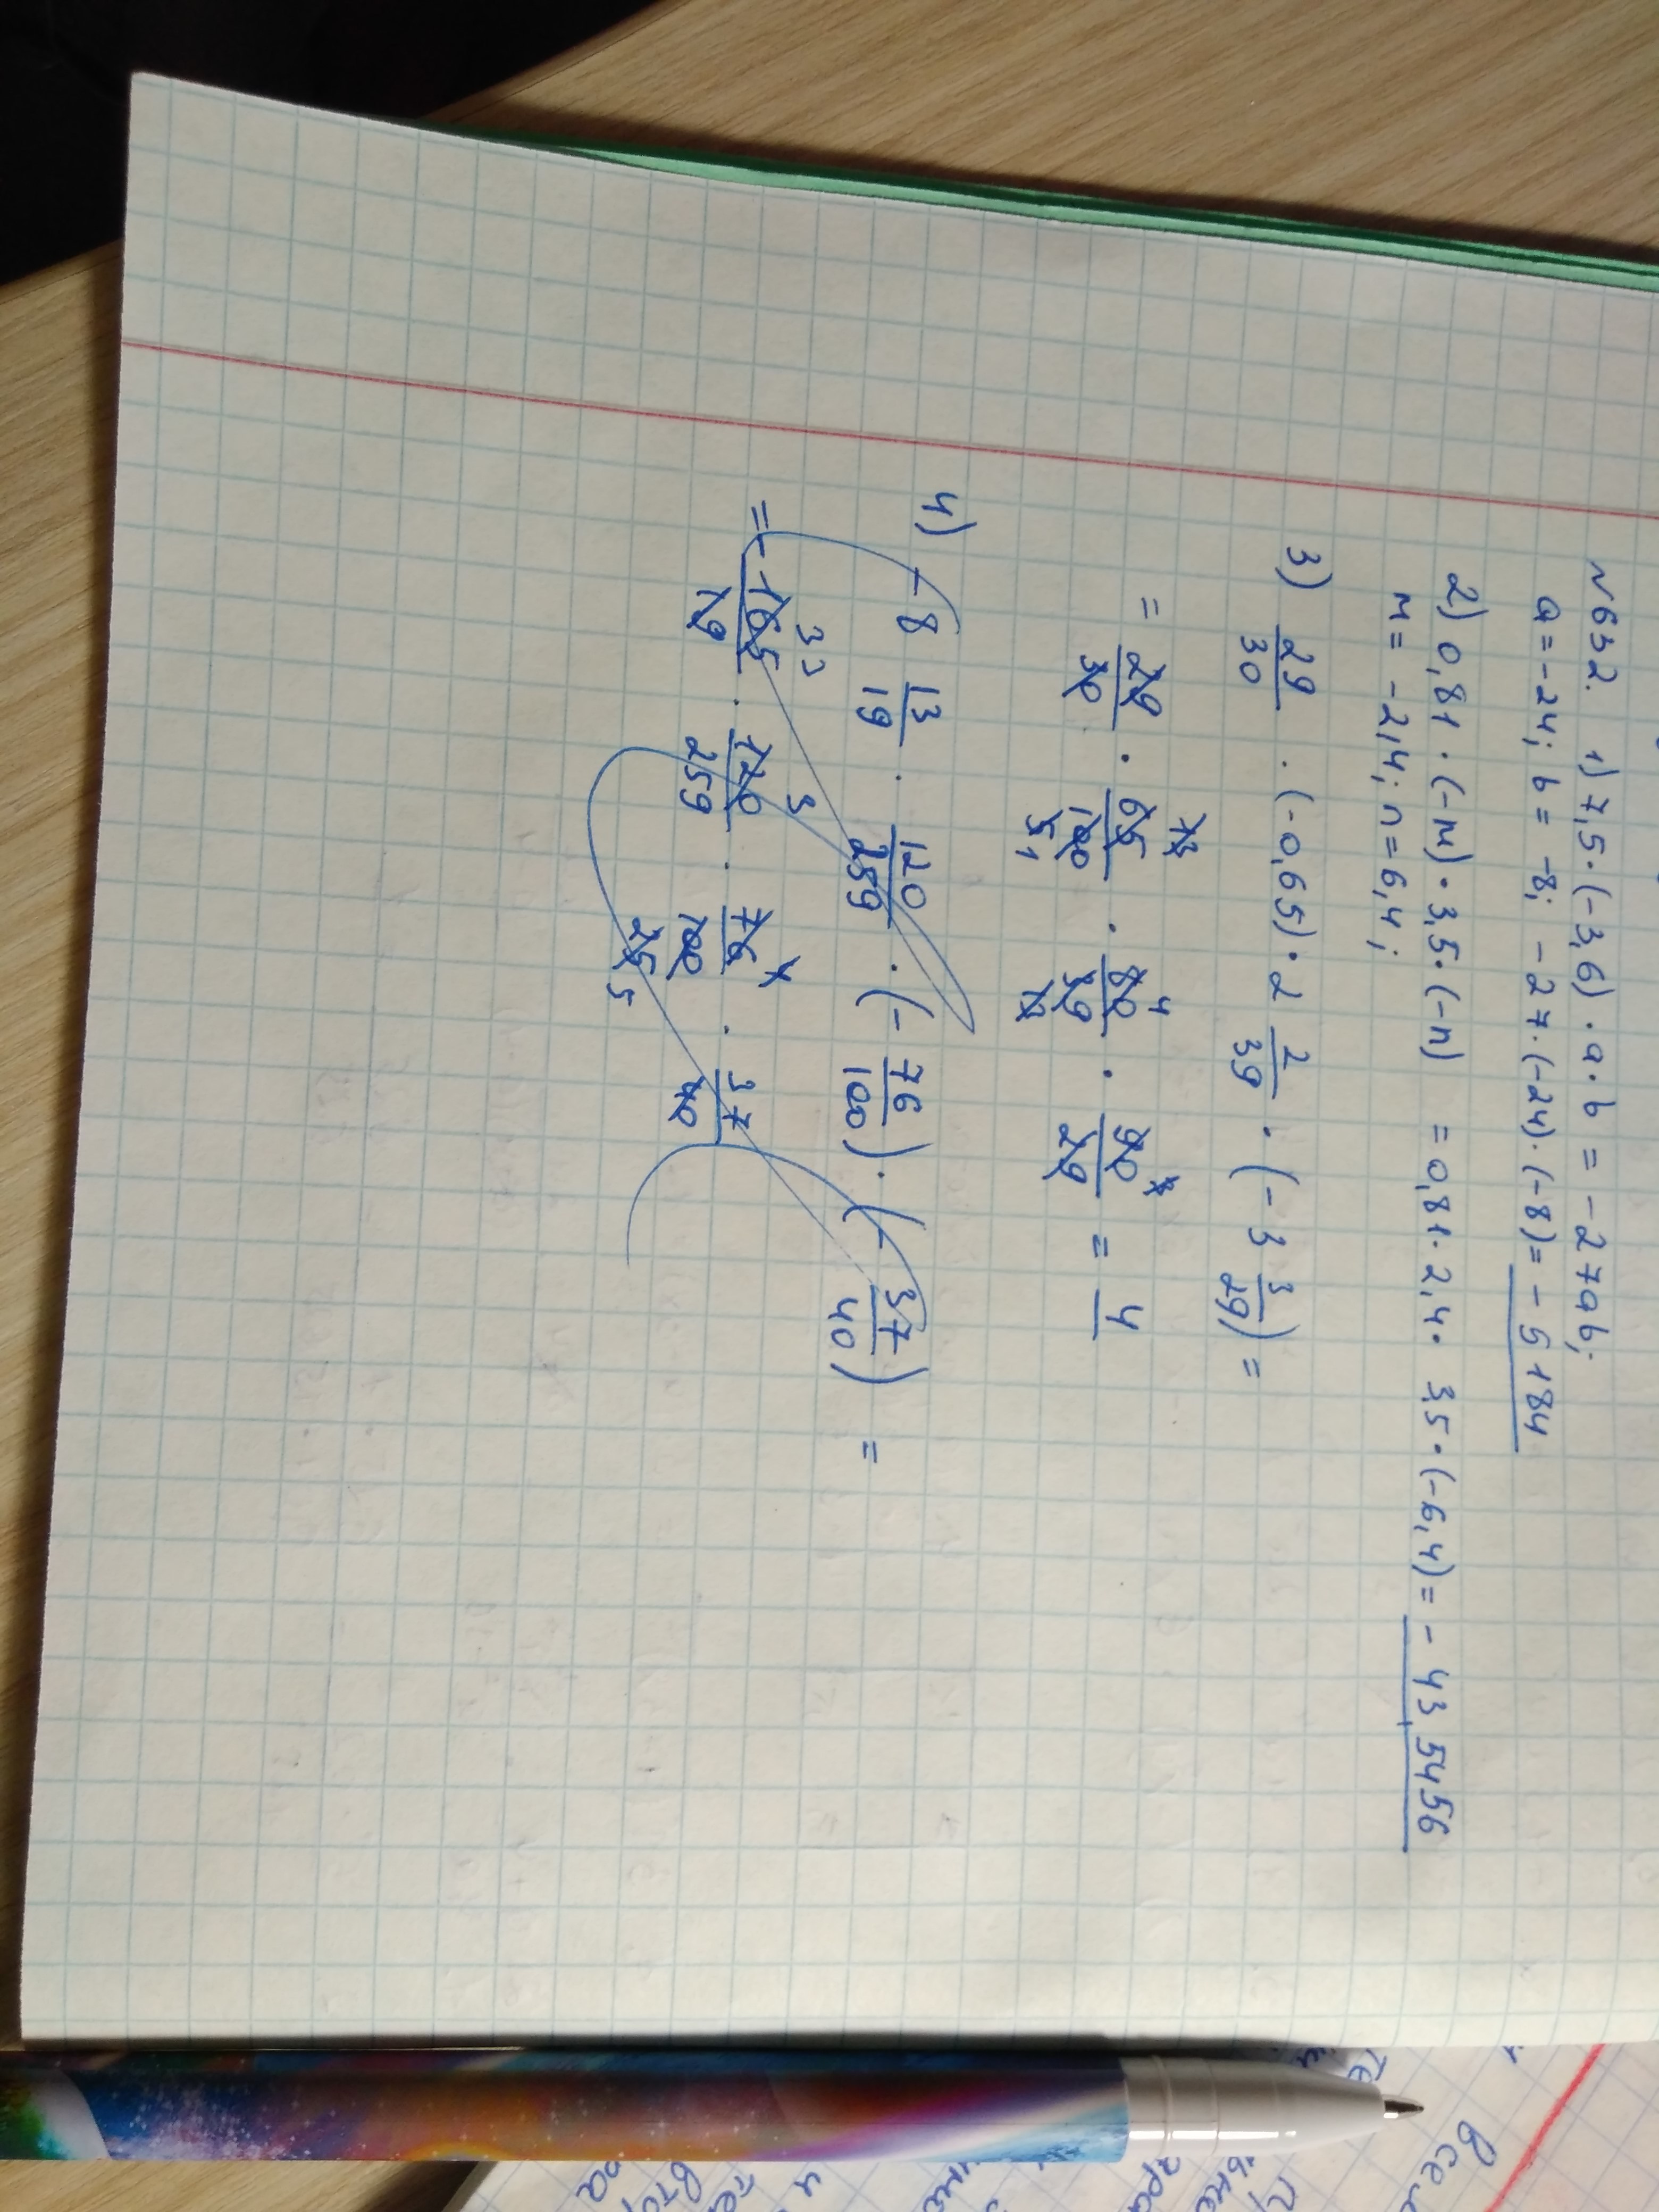 №632. 1) 7,5·(-3,6)·a·b = -27ab;
a=-24; b= -8; -27·(-24)·(-8)= -5184
2) 0,81·(-м)·3,5·(-n) = 0,81·2,4· 3,5·(-6,4)= - 43,5456
м= -2,4; n=6,4;
3) 29/30 · (-0,65)·2 2/39 · (-3 3/29) =
= 29/30 · 65/100 · 80/39 · 90/29 = 4
4) -8 13/19 · 120/259 · (-76/100)·(-37/40) =
=- 165/19 · 120/259 · 76/100 · 37/40